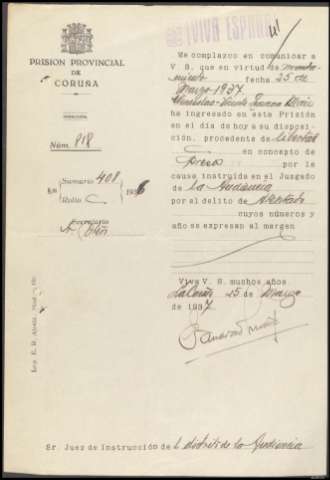 ¡VIVA ESPAÑA!
PRISION PROVINCIAL
DE
CORUÑA
Núm. 918
Sumario 408
Rollo C
1936
Secretario
Me complazco en comunicar a
V S. que en virtud de manda-
miento fecha 25 de
Marzo 1937
ha ingresado en esta Prisión
en el dia de hoy a su disposi-
ción, procedente de libertad
en concepto de
preso por la
causa instruida en el Juzgado
de La Audiencia
por el delito de
cuyos números y
año se expresan al margen
Viva V. S. muchos años.
La Coruña 25 de Marzo
de 1937
Sr. Juez de Instrucción de l distrito de la Audiencia